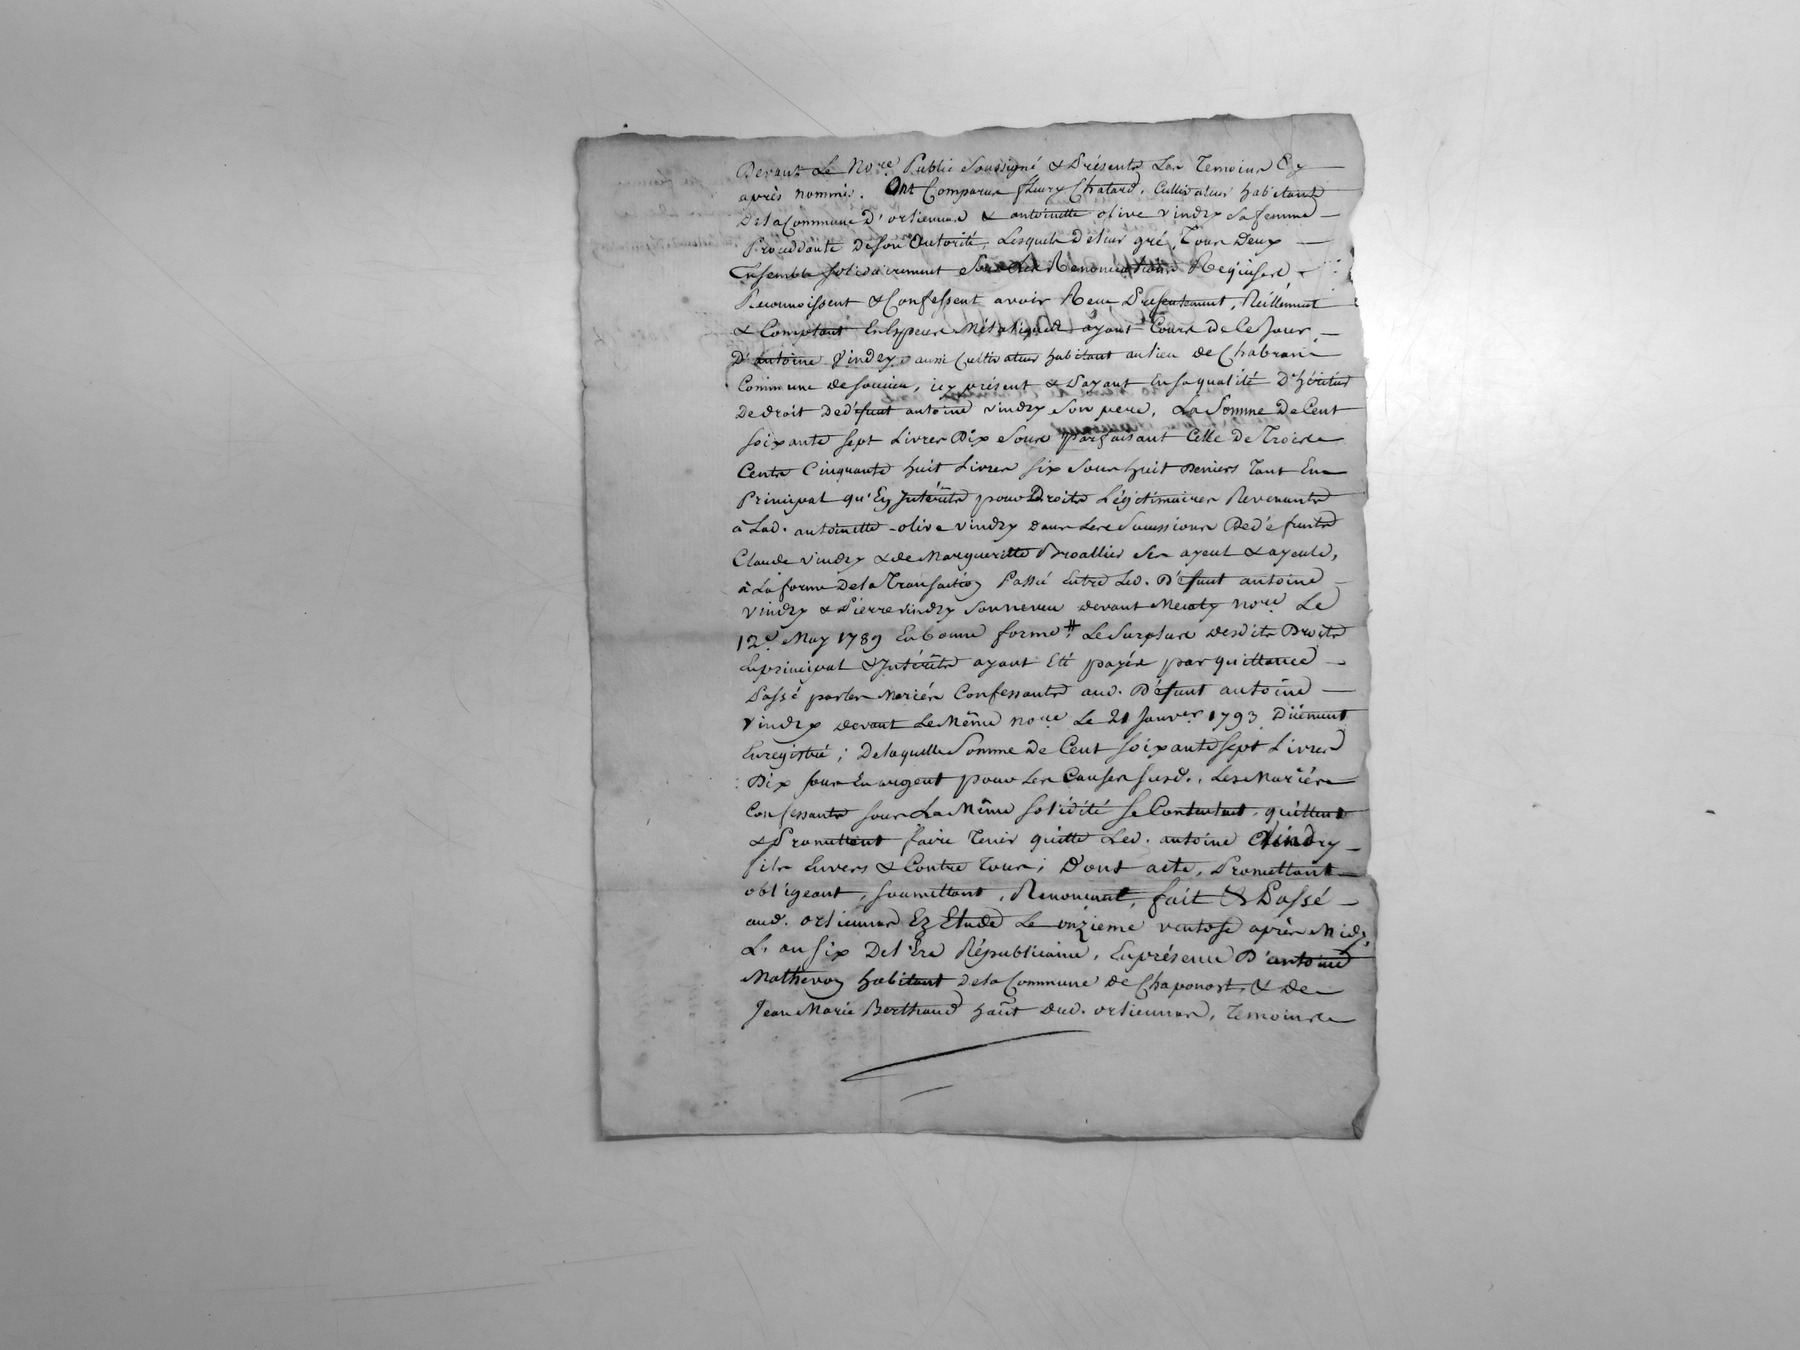 Devant Le No.re Public Soussigné & Présents Les Temoins Cy
après nommés. Ont Comparus fleury Chatard, Cultivateur habitant
De la Commune D'orliennas & antoinette olive vindry sa femme
Procedante De son Autorité, Lesquels De leur gré, Tous Deux
Ensemble solidairement Sous les Renonciations Requises
Reconnoissent & Confessent avoir Reçu Presentement, Réellement
& Comptant En Especes Métaliques ayant Cours de Ce Jour
D'antoine Vindry aussi Cultivateur habitant au lieu de Chabrani
Commune de soucieu, icy présent & Payant En sa qualité D'héritier
De droit De défunt antoine vindry son pere, La Somme De Cent
soixante sept Livres Dix Sous parfaisant Celle De Trois
Cents Cinquante huit Livres six Sous huit Deniers Tant En
Principal qu'En Intérêts pour Droits Légitimaires Revenants
à Lad. antoinette-olive vindry dans Les Successions De défunts
Claude vindry & de Margueritte Broallier Ses ayeul & ayeule,
à La forme De la Transaction Passée Entre Led. Défunt antoine
vindry & Pierre vindry Son neveu devant no.re Le
12.e May 1789 En bonne forme # Le Surplus desdits Droits
En principal & Intérêts ayant Eté payés par quittance
Passé par les Mariés Confessants aud. Défunt antoine
Vindry devant Le Même no.re Le 21 Janv.er 1793 Düement
Enregistré ; De laquelle Somme De Cent soixante sept Livres
Dix sous En argent pour Les Causes susd., Les Mariés
Confessants sous La Même solidité se Contentent, quittent
& Promettent faire Tenir quitte Led. antoine Vindry
fils Envers & Contre Tous ; D'ont acte, Promettant
obligeant, soumettant, Renonçant, fait & Passé
aud. orliennas Ez Etude Le onzieme ventose après Midy
L'an six De l'Ere Républicaine, En présence D'antoine
Mathevon habitant De la Commune de Chaponost, & De
Jean Marie Berthaud hañt dud. orliennas, Temoins